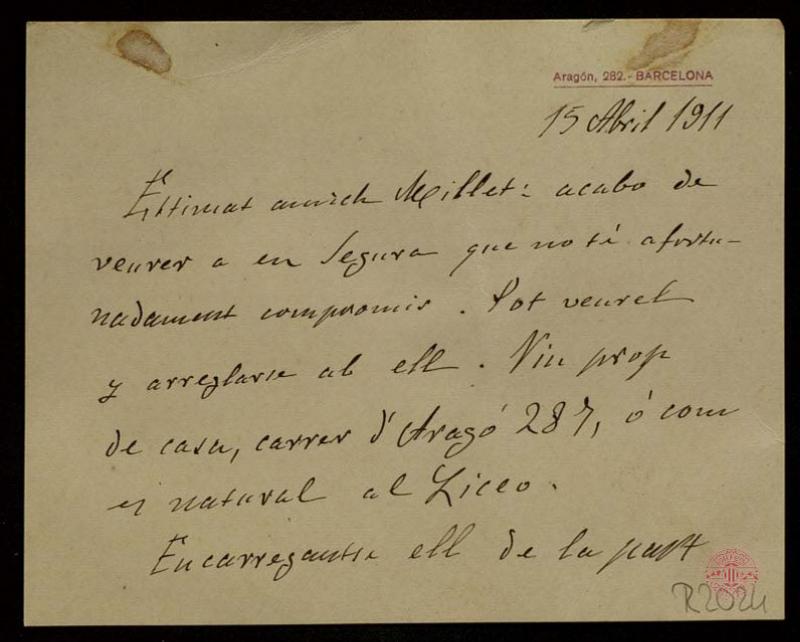 Aragón, 282.- BARCELONA
15 Abril 1911
Estimat amich Millet: acabo de
veurer a en Segura que no té afortu-
nadament compromis. Pot veurel
y arreglarse ab ell. Viu prop
de casa, carrer d'Aragó 287, ó com
es natural al Liceo.
Encarregantse ell de la part
R2024